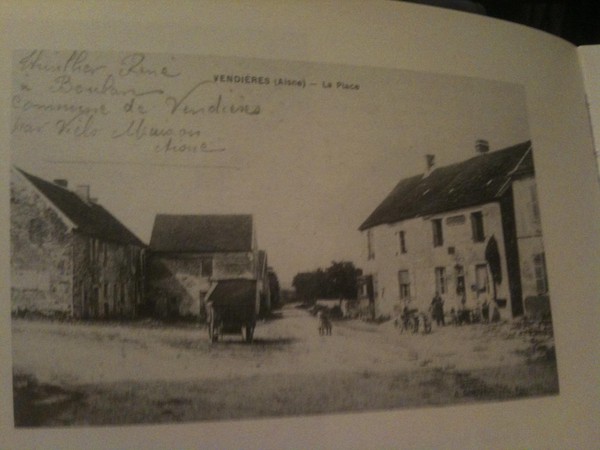 René
à
Commune de Vendières
par Viels Maison
Aisne
VENDIÈRES (Aisne) — La Place